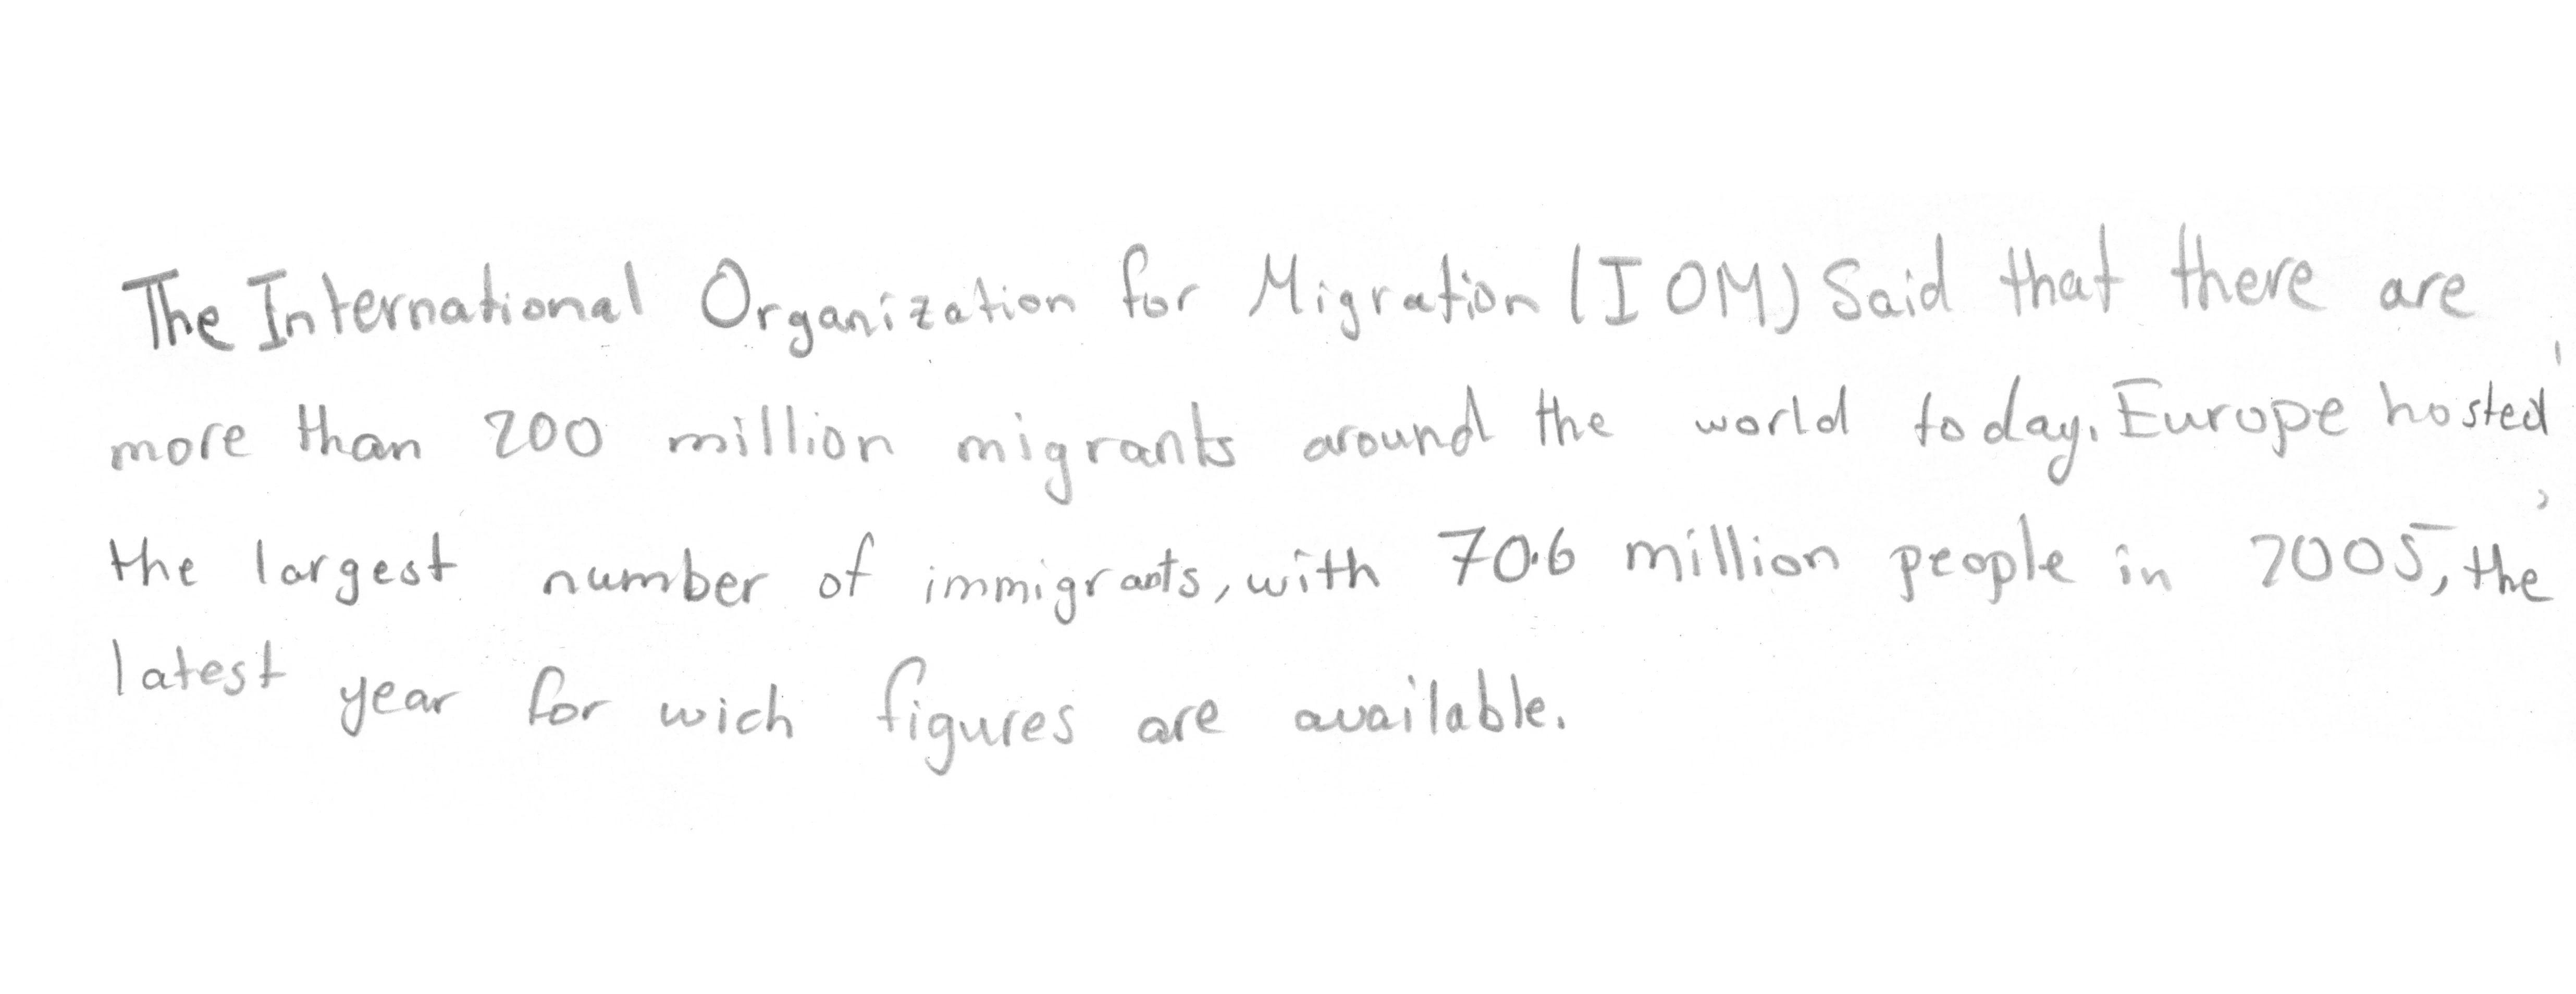 The International Organization for Migration (IOM) Said that there are
more than 200 million migrants around the world today. Europe hosted
the largest number of immigrants, with 70.6 million people in 2005, the
latest year for wich figures are available.